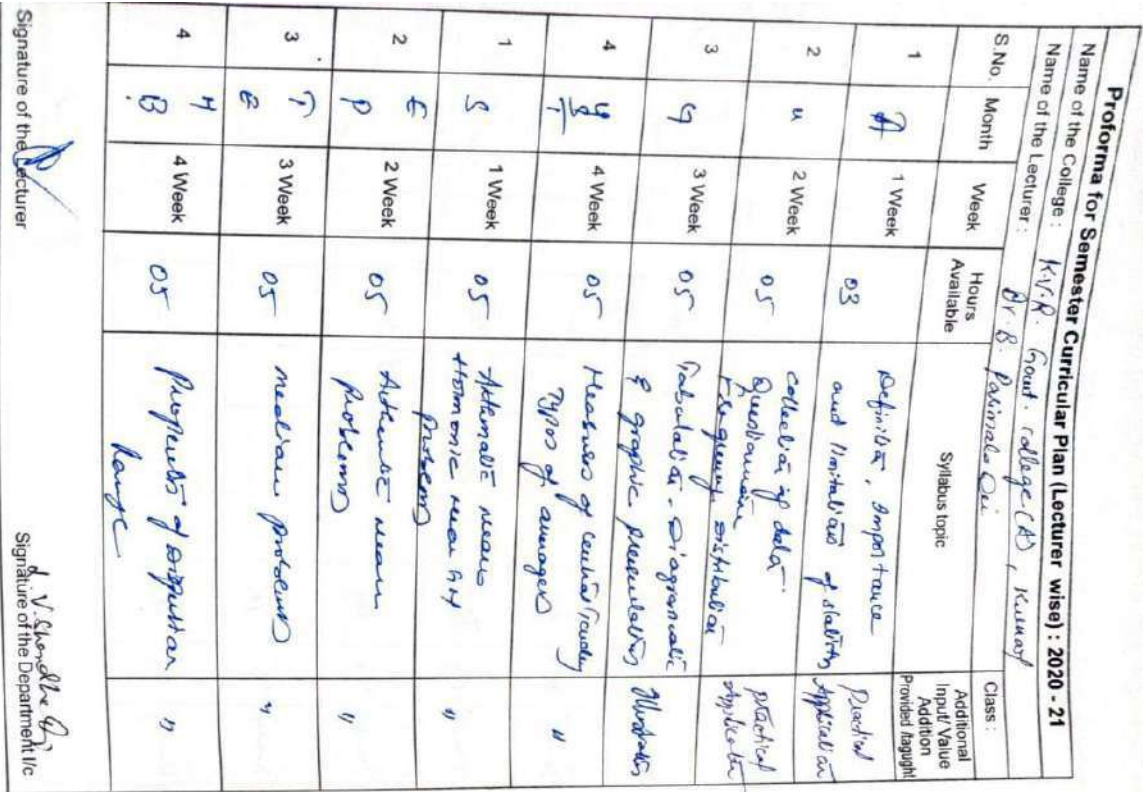 Proforma for Semester Curricular Plan (Lecturer wise) : 2020 - 21
Name of the College : K.V.R. Govt. College (A), Kurnool
Name of the Lecturer : Dr. B.
S.No. Month Week Hours Available Syllabus topic Class :
Additional Input/ Value Addition Provided /tagught
1 A 1 Week 03 Definition, Importance
and limitations of statistics Practical Application
2 u 2 Week 05 collection of data
Questionnaire
Frequency distribution practical Application
3 G 3 Week 05 Tabulation - Diagrammatic
& graphic presentation Illustration
4 4 Week 05 Measures of central tendency
Types of averages "
1 S 1 Week 05 Arithmatic mean
Harmonic mean
problems "
2 E P 2 Week 05 Arithmetic mean
problems "
3 T E 3 Week 05 median problems "
4 M B 4 Week 05 Properties of
Range "
Signature of the Lecturer
Signature of the Department I/c